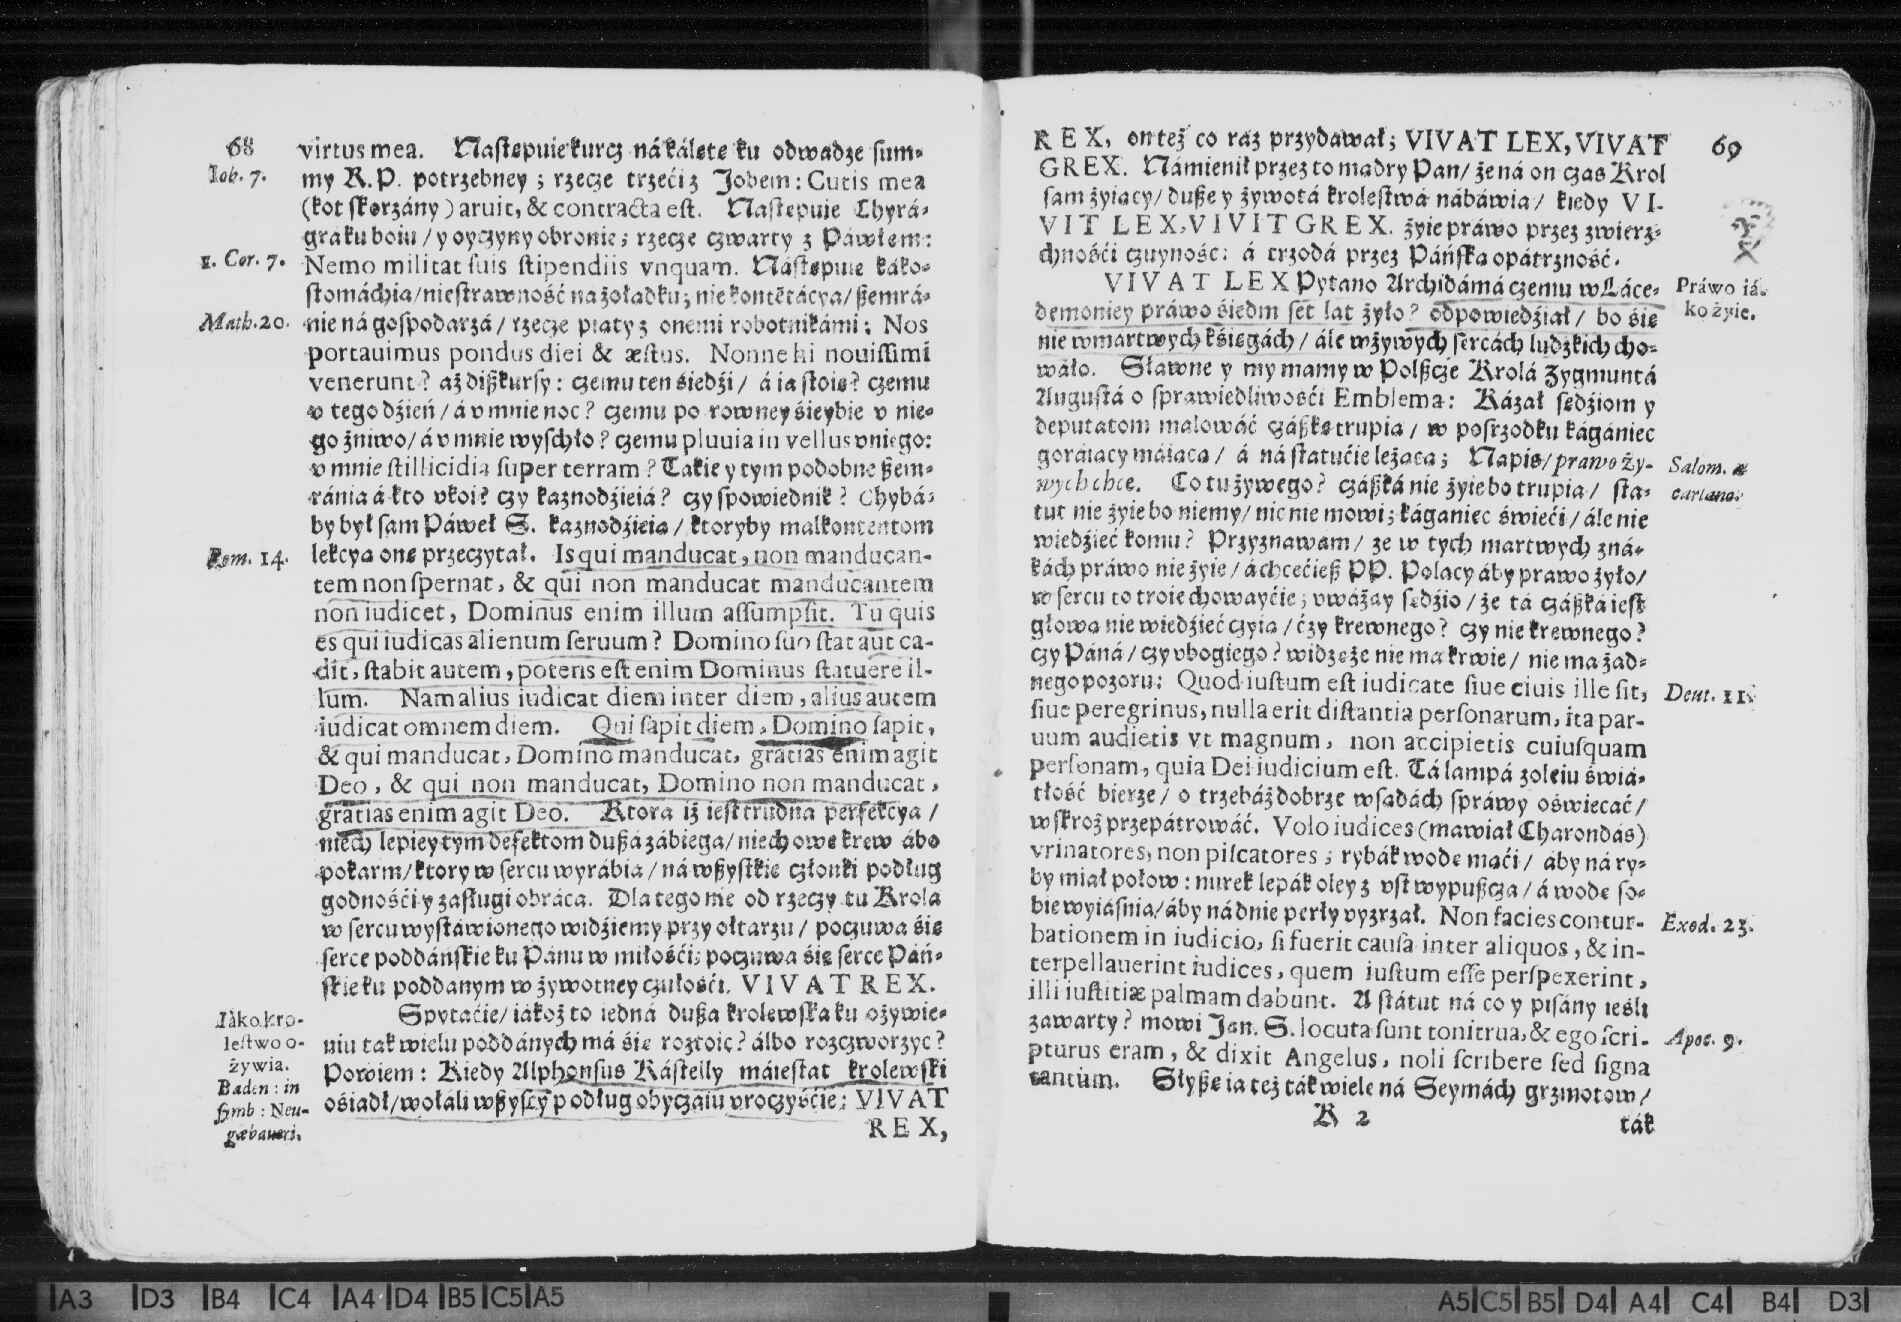 68
virtus mea. Nástępuie kurcz ná káletę ku odwadze sum-
Iob. 7.
my R.P. potrzebney; rzecze trzeći z Jobem: Cutis mea
(kot skorzány) aruit, & contracta est. Nástępuie Chyrá-
gra ku boiu / y oyczyny obronie; rzecze czwarty z Páwłem:
1. Cor. 7.
Nemo militat suis stipendiis vnquam. Nástępuie káko-
stomáchia / niestrawność na żołądku; nie kontẽtácya / szemrá-
Math. 20.
nie ná gospodarzá / rzecze piąty z onemi robotnikámi: Nos
portauimus pondus diei & æstus. Nonne hi nouissimi
venerunt? aż diszkursy: czemu ten śiedźi / á ia stoię? czemu
v tego dźień / á v mnie noc? czemu po rowney śieybie v nie-
go żniwo / á v mnie wyschło? czemu pluuia in vellus v niego:
v mnie stillicidia super terram? Takie y tym podobne szem-
ránia á kto vkoi? czy kaznodźieiá? czy spowiednik? Chybá-
by był sam Páweł S. kaznodźieia / ktoryby malkontentom
Rom. 14.
lekcyą onę przeczytał. Is qui manducat, non manducan-
tem non spernat, & qui non manducat manducantem
non iudicet, Dominus enim illum assumpsit. Tu quis
es qui iudicas alienum seruum? Domino suo stat aut ca-
dit, stabit autem, potens est enim Dominus statuere il-
lum. Nam alius iudicat diem inter diem, alius autem
iudicat omnem diem. Qui sapit diem, Domino sapit,
& qui manducat, Domino manducat, gratias enim agit
Deo, & qui non manducat, Domino non manducat,
gratias enim agit Deo. Ktora iż iest trudna perfekcya /
niech lepiey tym defektom dusza zábiega / niech owę krew ábo
pokarm / ktory w sercu wyrábia / ná wszystkie członki podług
godnośći y zasługi obráca. Dla tego nie od rzeczy tu Krola
w sercu wystáwionego widźiemy przy ołtarzu / poczuwa śię
serce poddáńskie ku Pánu w miłośći; poczuwa śię serce Páń-
skie ku poddanym w żywotney czułośći. VIVAT REX.
Iáko kro-
lestwo o-
żywia.
Baden: in
symb: Neu-
gæbaueri.
Spytaćie / iákoż to iedná dusza krolewska ku ożywie-
niu tak wielu poddánych má śię roztoić? álbo rozczworzyć?
Powiem: Kiedy Alphonsus Kástelly máiestat krolewski
ośiadł / wołáli wszyscy podług obyczaiu vroczyśćie: VIVAT
REX,
69
REX, on też co raz przydawał; VIVAT LEX, VIVAT
GREX. Námienił przez to mądry Pan / że ná on czas Krol
sam żyiący / duszę y żywotá krolestwá nábáwia / kiedy VI-
VIT LEX, VIVIT GREX. żyie práwo przez zwierz-
chnośći czuyność: á trzodá przez Páńską opátrzność.
Práwo iá-
ko żyie.
VIVAT LEX Pytano Archidámá czemu w Láce-
demoniey práwo śiedm set lat żyło? odpowiedźiał / bo śię
nie w martwych kśięgách / ále w żywych sercách ludzkich cho-
wáło. Sławne y my mamy w Polszcze Krolá Zygmuntá
Augustá o sprawiedliwośći Emblema: Kázał sędźiom y
deputatom malowáć czászkę trupią / w posrzodku kágániec
goráiący máiącą / á ná statućie leżącą; Napis / prawo ży-
Salom. &
wych chce. Co tu żywego? czászká nie żyie bo trupia / sta-
tut nie żyie bo niemy / nic nie mowi; káganiec świeći / ále nie
wiedźieć komu? Przyznawam / że w tych martwych zná-
kách práwo nie żyie / á chcećiesz PP. Polacy áby prawo żyło /
w sercu to troie chowayćie; vważay sędźio / że tá czászká iest
głowa nie wiedźieć czyia / czy krewnego? czy nie krewnego?
czy Páná / czy vbogiego? widzę że nie ma krwie / nie ma żad-
Deut. 11.
nego pozoru: Quod iustum est iudicate siue ciuis ille sit,
siue peregrinus, nulla erit distantia personarum, ita par-
uum audietis vt magnum, non accipietis cuiusquam
personam, quia Dei iudicium est. Tá lampá z oleiu świá-
tłość bierze / o trzebáż dobrze w sądách spráwy oświecać /
w skroż przepátrowáć. Volo iudices (mawiał Charondas)
vrinatores, non piscatores; rybák wodę mąći / áby ná ry-
by miał połow: nurek lepák oley z vst wypuszcza / á wodę so-
bie wyiásnia / áby ná dnie perły vyzrzał. Non facies contur-
Exod. 23.
bationem in iudicio, si fuerit causa inter aliquos, & in-
terpellauerint iudices, quem iustum esse perspexerint,
illi iustitiæ palmam dabunt. A státut ná co y pisány ieśli
zawarty? mowi Jan. S. locuta sunt tonitrua, & ego scri-
Apoc. 9.
pturus eram, & dixit Angelus, noli scribere sed signa
tantùm. Słyszę ia też ták wiele ná Seymách grzmotow /
K 2
ták
A3 D3 B4 C4 A4 D4 B5 C5 A5
A5 C5 B5 D4 A4 C4 B4 D3